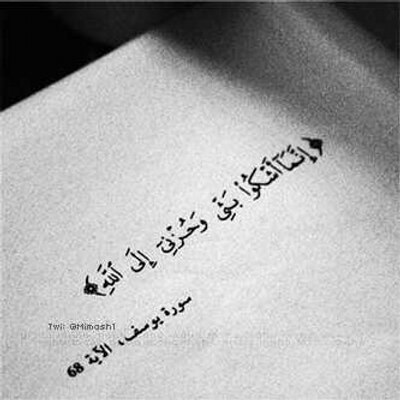 ﴿إِنَّمَآ أَشْكُوا۟ بَثِّى وَحُزْنِىٓ إِلَى ٱللَّهِ﴾
سورة يوسف، الآية 68
Twi: @Mimash1